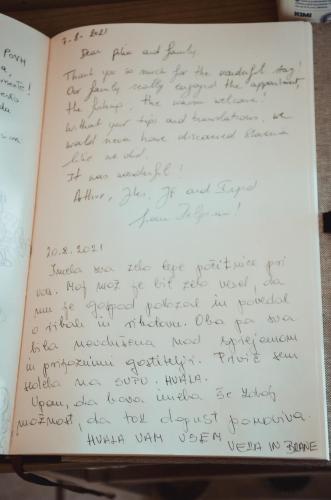 7-8-2021
Dear and family,
Thank you so much for the wonderful stay!
Our family really enjoyed the appartment,
the , the warm welcome.
Without your tips and translations, we
would never have discovered
like we did.
It was wonderful!
Arthur, and
from !
20.8.2021
Imela sva zelo lepe počitnice pri
vas. Moj mož je bil zelo vesel, da
mu je gospod pokazal in povedal
o ribah in ribolovu. Oba pa sva
bila navdušena nad sprejemom
in prijaznimi gostitelji. Prvič sem
na SUPU. HVALA.
Upam, da bova imela še kdaj
možnost, da tak dopust ponoviva.
HVALA VAM VSEM
IN BRANE
POVH
KIMI